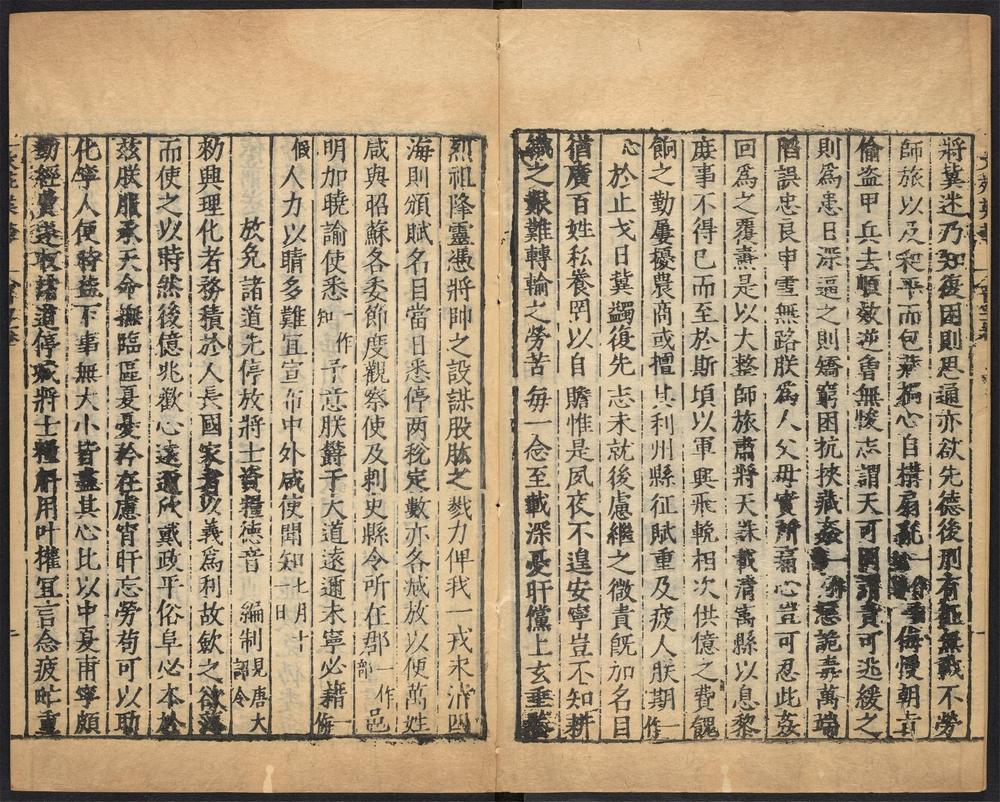 將冀迷乃知復困則思通亦欲先德後刑有征無戰不勞
師旅以及和平而包藏禍心自構扇亂侮慢朝章
偷盜甲兵去順效逆曾無悛志謂天可罔謂責可逃緩之
則為患日深逼之則矯窮困抗挾藏姦惡詭毒萬端
陷誤忠良申雪無路朕為人父母實所痛心豈可忍此姦
回為之覆燾是以大整師旅肅將天誅載清寓縣以息黎
庶事不得已而至於斯頃以軍興飛輓相次供億之費餽
餉之勤屢擾農商或擅其利州縣征賦重及疲人朕期一作
心於止戈日冀蠲復先志未就後慮繼之徵責既加名目
猶廣百姓私養罔以自贍惟是夙夜不遑安寧豈不知耕
織之艱難轉輸之勞苦每一念至載深憂旰儻上玄垂
烈祖降靈憑將帥之設謀股肱之戮力俾我一戎來清四
海則頒賦名目當日悉停兩稅定數亦各減放以便萬姓
咸與昭蘇各委節度觀察使及刺史縣令所在郡一作部邑
明加曉諭使悉一作知予意朕欝于大道遠邇未寧必藉一作
假人力以睛多難宜宣布中外咸使聞知七月十一日
放免諸道先停放將士資糧德音 編制見唐大詔令
勑興理化者務積於人長國家者以義為利故斂之欲薄
而使之以時然後億兆歡心遠邇欣戴政平俗阜必本於
茲朕服承天命撫臨區夏憂矜在慮宵旰忘勞苟可以助
化寧人便時益下事無大小皆盡其心比以中夏甫寧頗
勤經費遂取諸道停減將士糧斛用叶權宜言念疲甿重